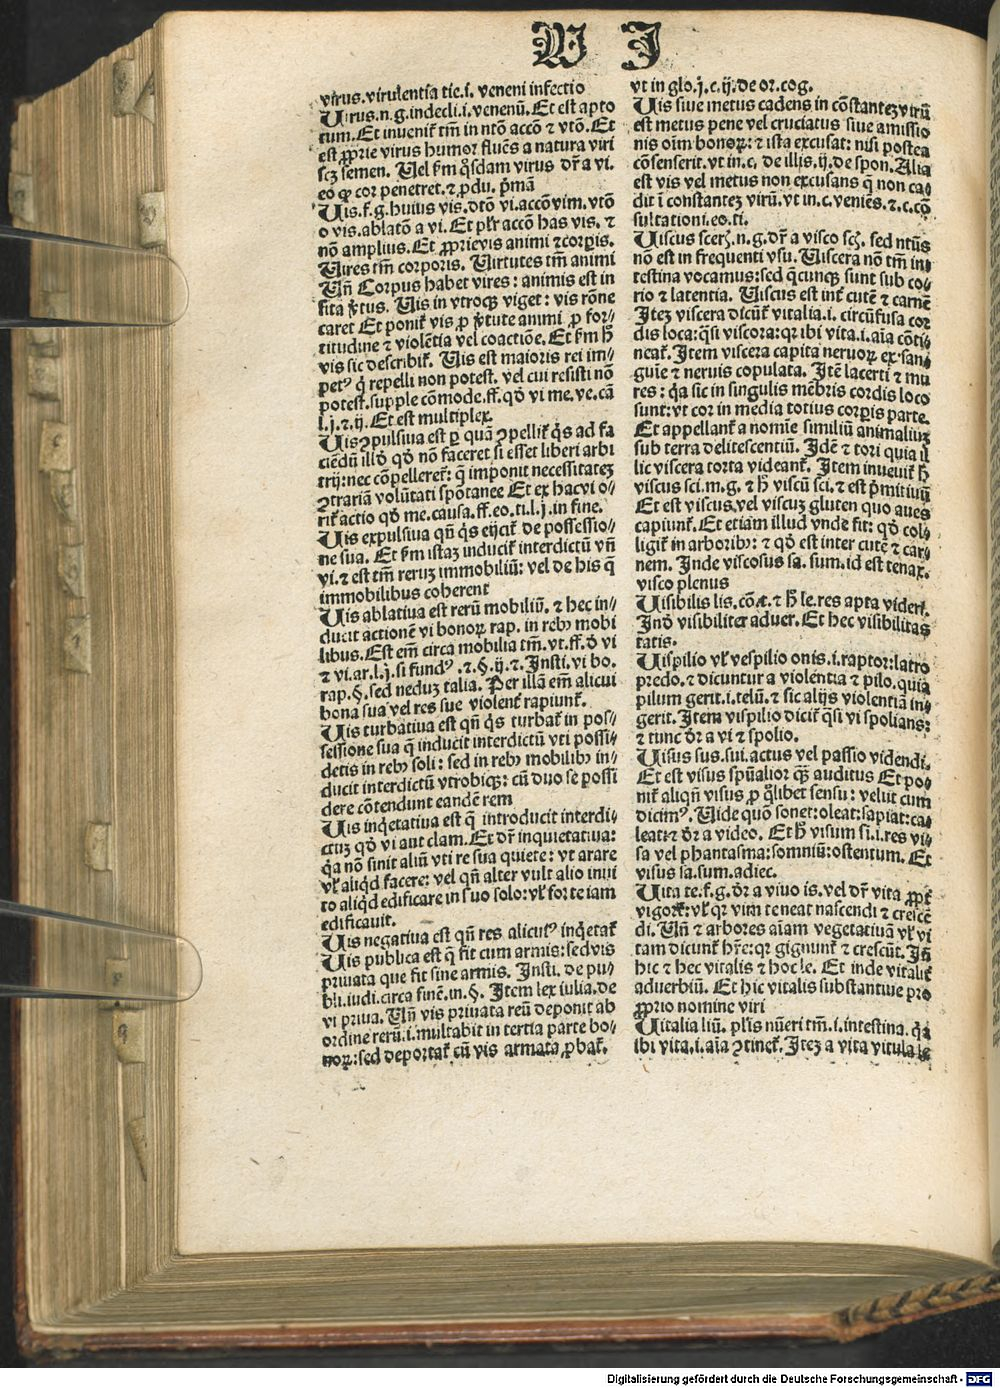 V I
virus.virulentia tie.i. veneni infectio
Uirus.n.g.indecli.i.venenū.Et est apto
tum.Et inuenit̄ tm̄ in ntō accō ⁊ vtō.Et
est ꝓprie virus humor fluēs a natura viri
scꝫ semen. Uel ẜm q̇sdam virus dr̄ a vi.
eo ꝙ cor penetret.⁊ ꝓdu. p̄mā
Uis.f.g.huius vis.dtō vi.accō vim.vtō
o vis.ablatō a vi.Et plr̄ accō has vis. ⁊
nō amplius.Et ꝓprie vis animi ⁊ corꝑis.
Uires tm̄ corporis. Uirtutes tm̄ animi
Un̄ Corpus habet vires: animis est in
sita v̓tus. Uis in vtroqꝫ viget: vis rōne
caret Et ponit̄ vis ꝓ v̓tute animi ꝓ for⸗
titudine ⁊ violētia vel coactiōe.Et ẜm ħ
vis sic describit̄. Uis est maioris rei im⸗
petꝰ q̄ repelli non potest. vel cui resisti nō
potest.supple cōmode.ff.qḋ vi me.ve.cā
l.j.⁊.ij.Et est multiplex.
Uis ꝯpulsiua est ꝑ quā ꝯpellit̄ q̇s ad fa
ciēdū illḋ qḋ nō faceret si esset liberi arbi
trij:nec cōpelleret̄: q̄ imponit necessitatez
ꝯtrariā volūtati spōtanee Et ex hac vi o⸗
rit̄ actio qḋ me.causa.ff.eo.ti.l.j.in fine.
Uis expulsiua qn̄ q̇s eijcit̄ de possessio⸗
ne sua. Et ẜm istaꝫ inducit̄ interdictū vn̄
vi.⁊ est tm̄ reruꝫ immobiliū: vel de his q̄
immobilibus coherent
Uis ablatiua est rerū mobiliū. ⁊ hec in⸗
ducit actionē vi bonoꝝ rap. in rebꝰ mobi
libus.Est em̄ circa mobilia tm̄.vt.ff.ḋ vi
⁊ vi.ar.l.j.si fundꝰ .⁊.§.ij.⁊. Insti.vi bo.
rap.§.sed neduꝫ talia. Per illā em̄ alicui
bona sua vel res sue violent̄ rapiunt̄.
Uis turbatiua est qn̄ q̇s turbat̄ in pos⸗
sessione sua q̄ inducit interdictū vti possi⸗
detis in rebꝰ soli: sed in rebꝰ mobilibꝰ in⸗
ducit interdictū vtrobiqꝫ: cū duo se possi
dere cōtendunt eandē rem
Uis inq̇etatiua est q̄ introducit interdi⸗
ctuꝫ qḋ vi aut clam.Et dr̄ inquietatiua:
q̇a nō sinit aliū vti re sua quiete: vt arare
vl̄ aliq̇d facere: vel qn̄ alter vult alio inui
to aliq̇d edificare in suo solo:vl̄ forte iam
edificauit.
Uis negatiua est qn̄ res alicuiꝰ inq̇etat̄
Uis publica est q̄ fit cum armis: sed vis
priuata que fit sine armis. Insti. de pu⸗
bli.iudi.circa finē.in.§. Item lex iulia.de
vi priua. Un̄ vis priuata reū deponit ab
ordine rerū.i.multabit in tertia parte bo⸗
noꝝ:sed deportat̄ cū vis armata ꝓbat̄.
vt in glo.j.c.ij.de or.cog.
Uis siue metus cadens in cōstanteꝫ virū
est metus pene vel cruciatus siue amissio
nis oīm bonoꝝ: ⁊ ista excusat: nisi postea
cōsenserit.vt in.c. de illis.ij.de spon.Alia
est vis vel metus non excusans q̄ non ca⸗
dit ī constanteꝫ virū.vt in.c.veniēs.⁊.c.cō
sultationi.eo.ti.
Uiscus scerꝭ.n.g.dr̄ a visco scꝭ. sed ntūs
nō est in frequenti vsu. Uiscera nō tm̄ in⸗
testina vocamus:sed q̄cunqꝫ sunt sub co⸗
rio ⁊ latentia. Uiscus est int̄ cutē ⁊ carnē
Iteꝫ viscera dicūt̄ vitalia.i. circūfusa cor
dis loca: q̄si viscora: qr ibi vita.i.aīa cōti⸗
neat̄. Item viscera capita neruoꝝ ex san⸗
guīe ⁊ neruis copulata. Itē lacerti ⁊ mu
res: q̇a sic in singulis mēbris cordis loco
sunt:vt cor in media totius corꝑis parte.
Et appellant̄ a nomīe similiū animaliuꝫ
sub terra delitescentiū. Idē ⁊ tori quia il
lic viscera torta videant̄. Item inuenit̄ ħ
viscus sci.m.g.⁊ ħ viscū sci.⁊ est p̄mitiuū
Et est viscus.vel viscuꝫ gluten quo aues
capiunt̄.Et etiam illud vnde fit: qḋ col⸗
ligit̄ in arboribꝰ: ⁊ qḋ est inter cutē ⁊ car⸗
nem. Inde viscosus sa. sum.id est tenax.
visco plenus
Uisibilis lis.cōꝭ.⁊ ħ le.res apta videri.
Inḋ visibiliter aduer. Et hec visibilitas
tatis.
Uispilio vl̄ vespilio onis.i.raptor:latro
predo.⁊ dicuntur a violentia ⁊ pilo.quia
pilum gerit.i.telū.⁊ sic alijs violentiā in⸗
gerit. Item vispilio dicit̄ q̄si vi spolians:
⁊ tunc dr̄ a vi ⁊ spolio.
Uisus sus.sui.actus vel passio videndi.
Et est visus spūalior qꝫ auditus Et po⸗
nit̄ aliqn̄ visus ꝓ q̇libet sensu: velut cum
dicimꝰ. Uide quō sonet:oleat:sapiat:ca⸗
leat:⁊ dr̄ a video. Et ħ visum si.i.res vi⸗
sa vel phantasma:somniū:ostentum. Et
visus sa.sum.adiec.
Uita te.f.g.dr̄ a viuo is.vel dr̄ vita ꝓpt̄
vigorē:vl̄ qr vim teneat nascendi ⁊ crescē
di. Un̄ ⁊ arbores aīam vegetatiuā vl̄ vi
tam dicunt̄ hr̄e:qr gignunt̄ ⁊ crescūt. In̄
hic ⁊ hec vitalis ⁊ hoc le. Et inde vitalit̄
aduerbiū. Et hic vitalis substantiue pro
ꝓprio nomine viri
Uitalia liū. pl̄is nūeri tm̄.i.intestina.q̇a
ibi vita.i.aīa ꝯtinet̄.Iteꝫ a vita vitula le
Digitalisierung gefördert durch die Deutsche Forschungsgemeinschaft - DFG